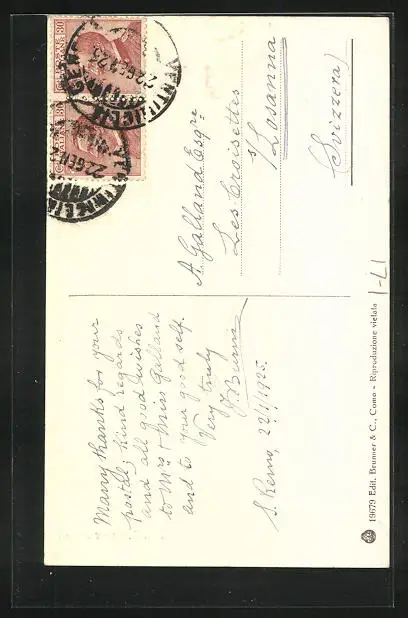 Many thanks for your
postal, kind regards
and all good wishes
to Mrs & Miss Galland
and to your good self.
Very truly
J Burns
S. Remo, 22/1/1925.
A. Galland Esqre
Les Croisettes
s/ Losanna
(Svizzera)
CENT. 30
CENT. 30
VENTIMIGLIA
22 GEN. 25
VENTIMIGLIA
22 GEN. 25
19679 Edit. Brunner & C., Como - Riproduzione vietata
1-71